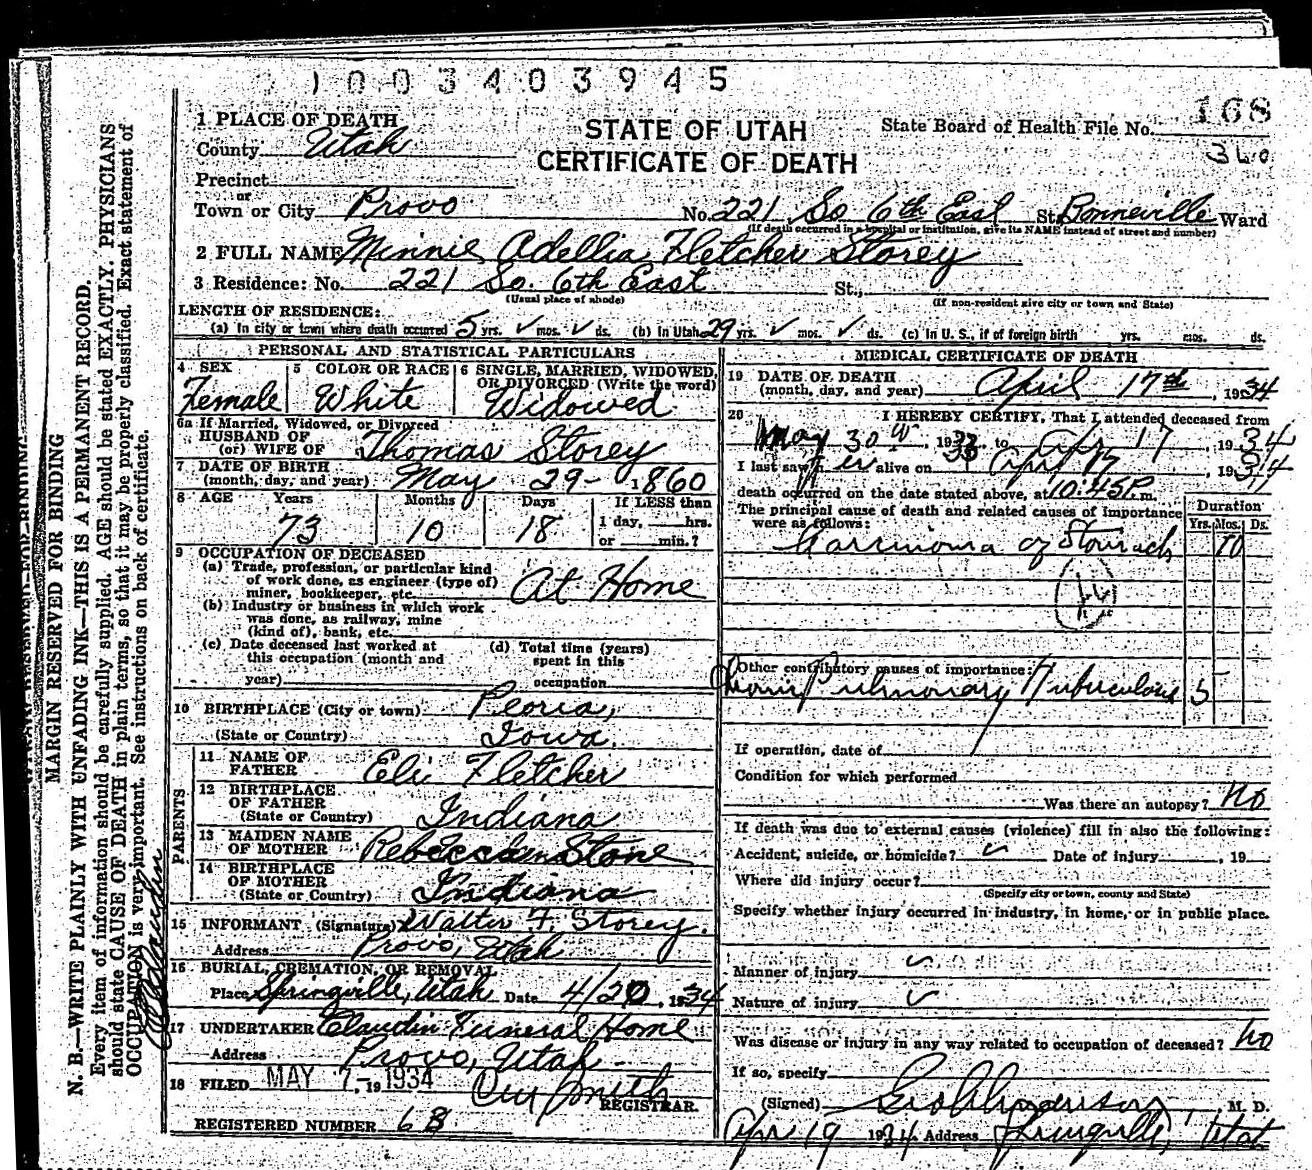 1003403945
168
STATE OF UTAH
CERTIFICATE OF DEATH
State Board of Health File No.
360
1 PLACE OF DEATH
County Utah
Precinct
or
Town or City Provo No. 221 So 6th East St. Bonneville Ward
(If death occurred in a hospital or institution, give its NAME instead of street and number)
2 FULL NAME Minnie Adellia Fletcher Storey
3 Residence: No. 221 So. 6th East St.,
(Usual place of abode) (If non-resident give city or town and State)
LENGTH OF RESIDENCE:
(a) In city or town where death occurred 5 yrs. ✓ mos. ✓ ds. (b) In Utah 29 yrs. ✓ mos. ✓ ds. (c) In U. S., if of foreign birth yrs. mos. ds.
PERSONAL AND STATISTICAL PARTICULARS
4 SEX
Female
5 COLOR OR RACE
White
6 SINGLE, MARRIED, WIDOWED, OR DIVORCED (Write the word)
Widowed
6a If Married, Widowed, or Divorced
HUSBAND OF
(or) WIFE OF Thomas Storey
7 DATE OF BIRTH
(month, day, and year) May 29- 1860
8 AGE Years Months Days If LESS than
73 10 18 1 day, hrs.
or min.?
9 OCCUPATION OF DECEASED
(a) Trade, profession, or particular kind
of work done, as engineer (type of)
miner, bookkeeper, etc. At Home
(b) Industry or business in which work
was done, as railway, mine
(kind of), bank, etc.
(c) Date deceased last worked at
this occupation (month and
year)
(d) Total time (years)
spent in this
occupation
10 BIRTHPLACE (City or town) Peoria,
(State or Country) Iowa.
PARENTS
11 NAME OF
FATHER Eli Fletcher
12 BIRTHPLACE
OF FATHER
(State or Country) Indiana
13 MAIDEN NAME
OF MOTHER Rebecca Stone
14 BIRTHPLACE
OF MOTHER
(State or Country) Indiana
15 INFORMANT (Signature) Walter F. Storey.
Address Provo, Utah
16 BURIAL, CREMATION, OR REMOVAL
Place Springville, Utah Date 4/20, 1934
17 UNDERTAKER Claudin Funeral Home
Address Provo, Utah -
18 FILED MAY 7- 19 1934
REGISTRAR.
REGISTERED NUMBER 68
MEDICAL CERTIFICATE OF DEATH
19 DATE OF DEATH
(month, day, and year) April 17th, 1934
20 I HEREBY CERTIFY, That I attended deceased from
May 30, 1933, to Apr 17, 1934
I last saw her alive on April 17, 1934
death occurred on the date stated above, at 10:45 P. m.
The principal cause of death and related causes of importance
were as follows:
Duration
Yrs. Mos. Ds.
Carcinoma of Stomach 10
Other contributory causes of importance:
Chronic Pulmonary Tuberculous 5
If operation, date of
Condition for which performed
Was there an autopsy? No
If death was due to external causes (violence) fill in also the following:
Accident, suicide, or homicide? ✓ Date of injury , 19
Where did injury occur?
(Specify city or town, county and State)
Specify whether injury occurred in industry, in home, or in public place.
Manner of injury ✓
Nature of injury ✓
Was disease or injury in any way related to occupation of deceased? No
If so, specify
(Signed) , M. D.
Apr 19 1934 Address Springville, Utah
MARGIN RESERVED FOR BINDING
N. B.—WRITE PLAINLY WITH UNFADING INK—THIS IS A PERMANENT RECORD.
Every item of information should be carefully supplied. AGE should be stated EXACTLY. PHYSICIANS
should state CAUSE OF DEATH in plain terms, so that it may be properly classified. Exact statement of
OCCUPATION is very important. See instructions on back of certificate.